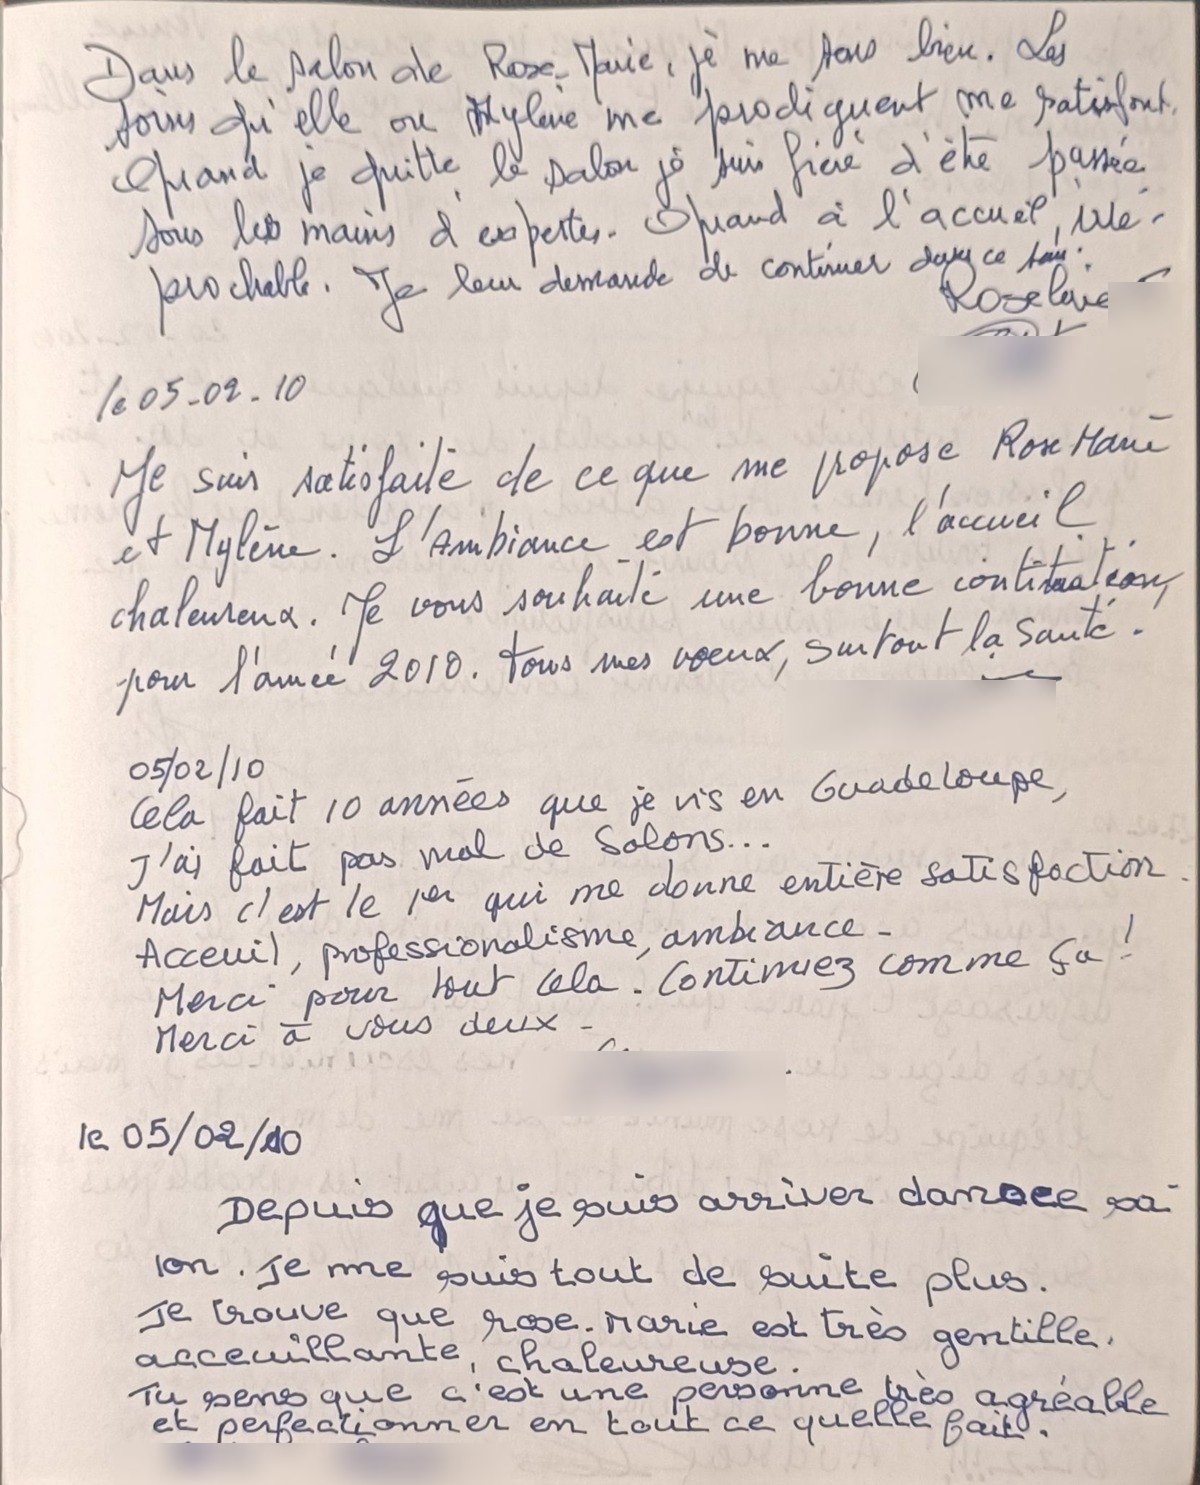 Dans le salon de Rose-Marie, je me sens bien. Les
soins qu'elle ou Mylène me prodiguent me satisfont.
Quand je quitte le salon je suis fière d'être passée
sous les mains d'expertes. Quand à l'accueil, irré-
prochable. Je leur demande de continuer dans ce
Roselaine
le 05-02-10
Je suis satisfaite de ce que me propose Rose Marie
et Mylène. L'Ambiance est bonne, l'accueil
chaleureux. Je vous souhaite une bonne continuation,
pour l'année 2010. Tous mes voeux, surtout la Santé.
05/02/10
Cela fait 10 années que je vis en Guadeloupe,
J'ai fait pas mal de Salons...
Mais c'est le 1er qui me donne entière satisfaction.
Acceuil, professionalisme, ambiance -
Merci pour tout cela. Continuez comme ça!
Merci à vous deux -
le 05/02/10
Depuis que je suis arriver dans ce sa-
lon. Je me suis tout de suite plus.
Je trouve que rose-Marie est très gentille.
acceuillante, chaleureuse.
Tu sens que c'est une personne très agréable
et perfectionner en tout ce quelle fait.